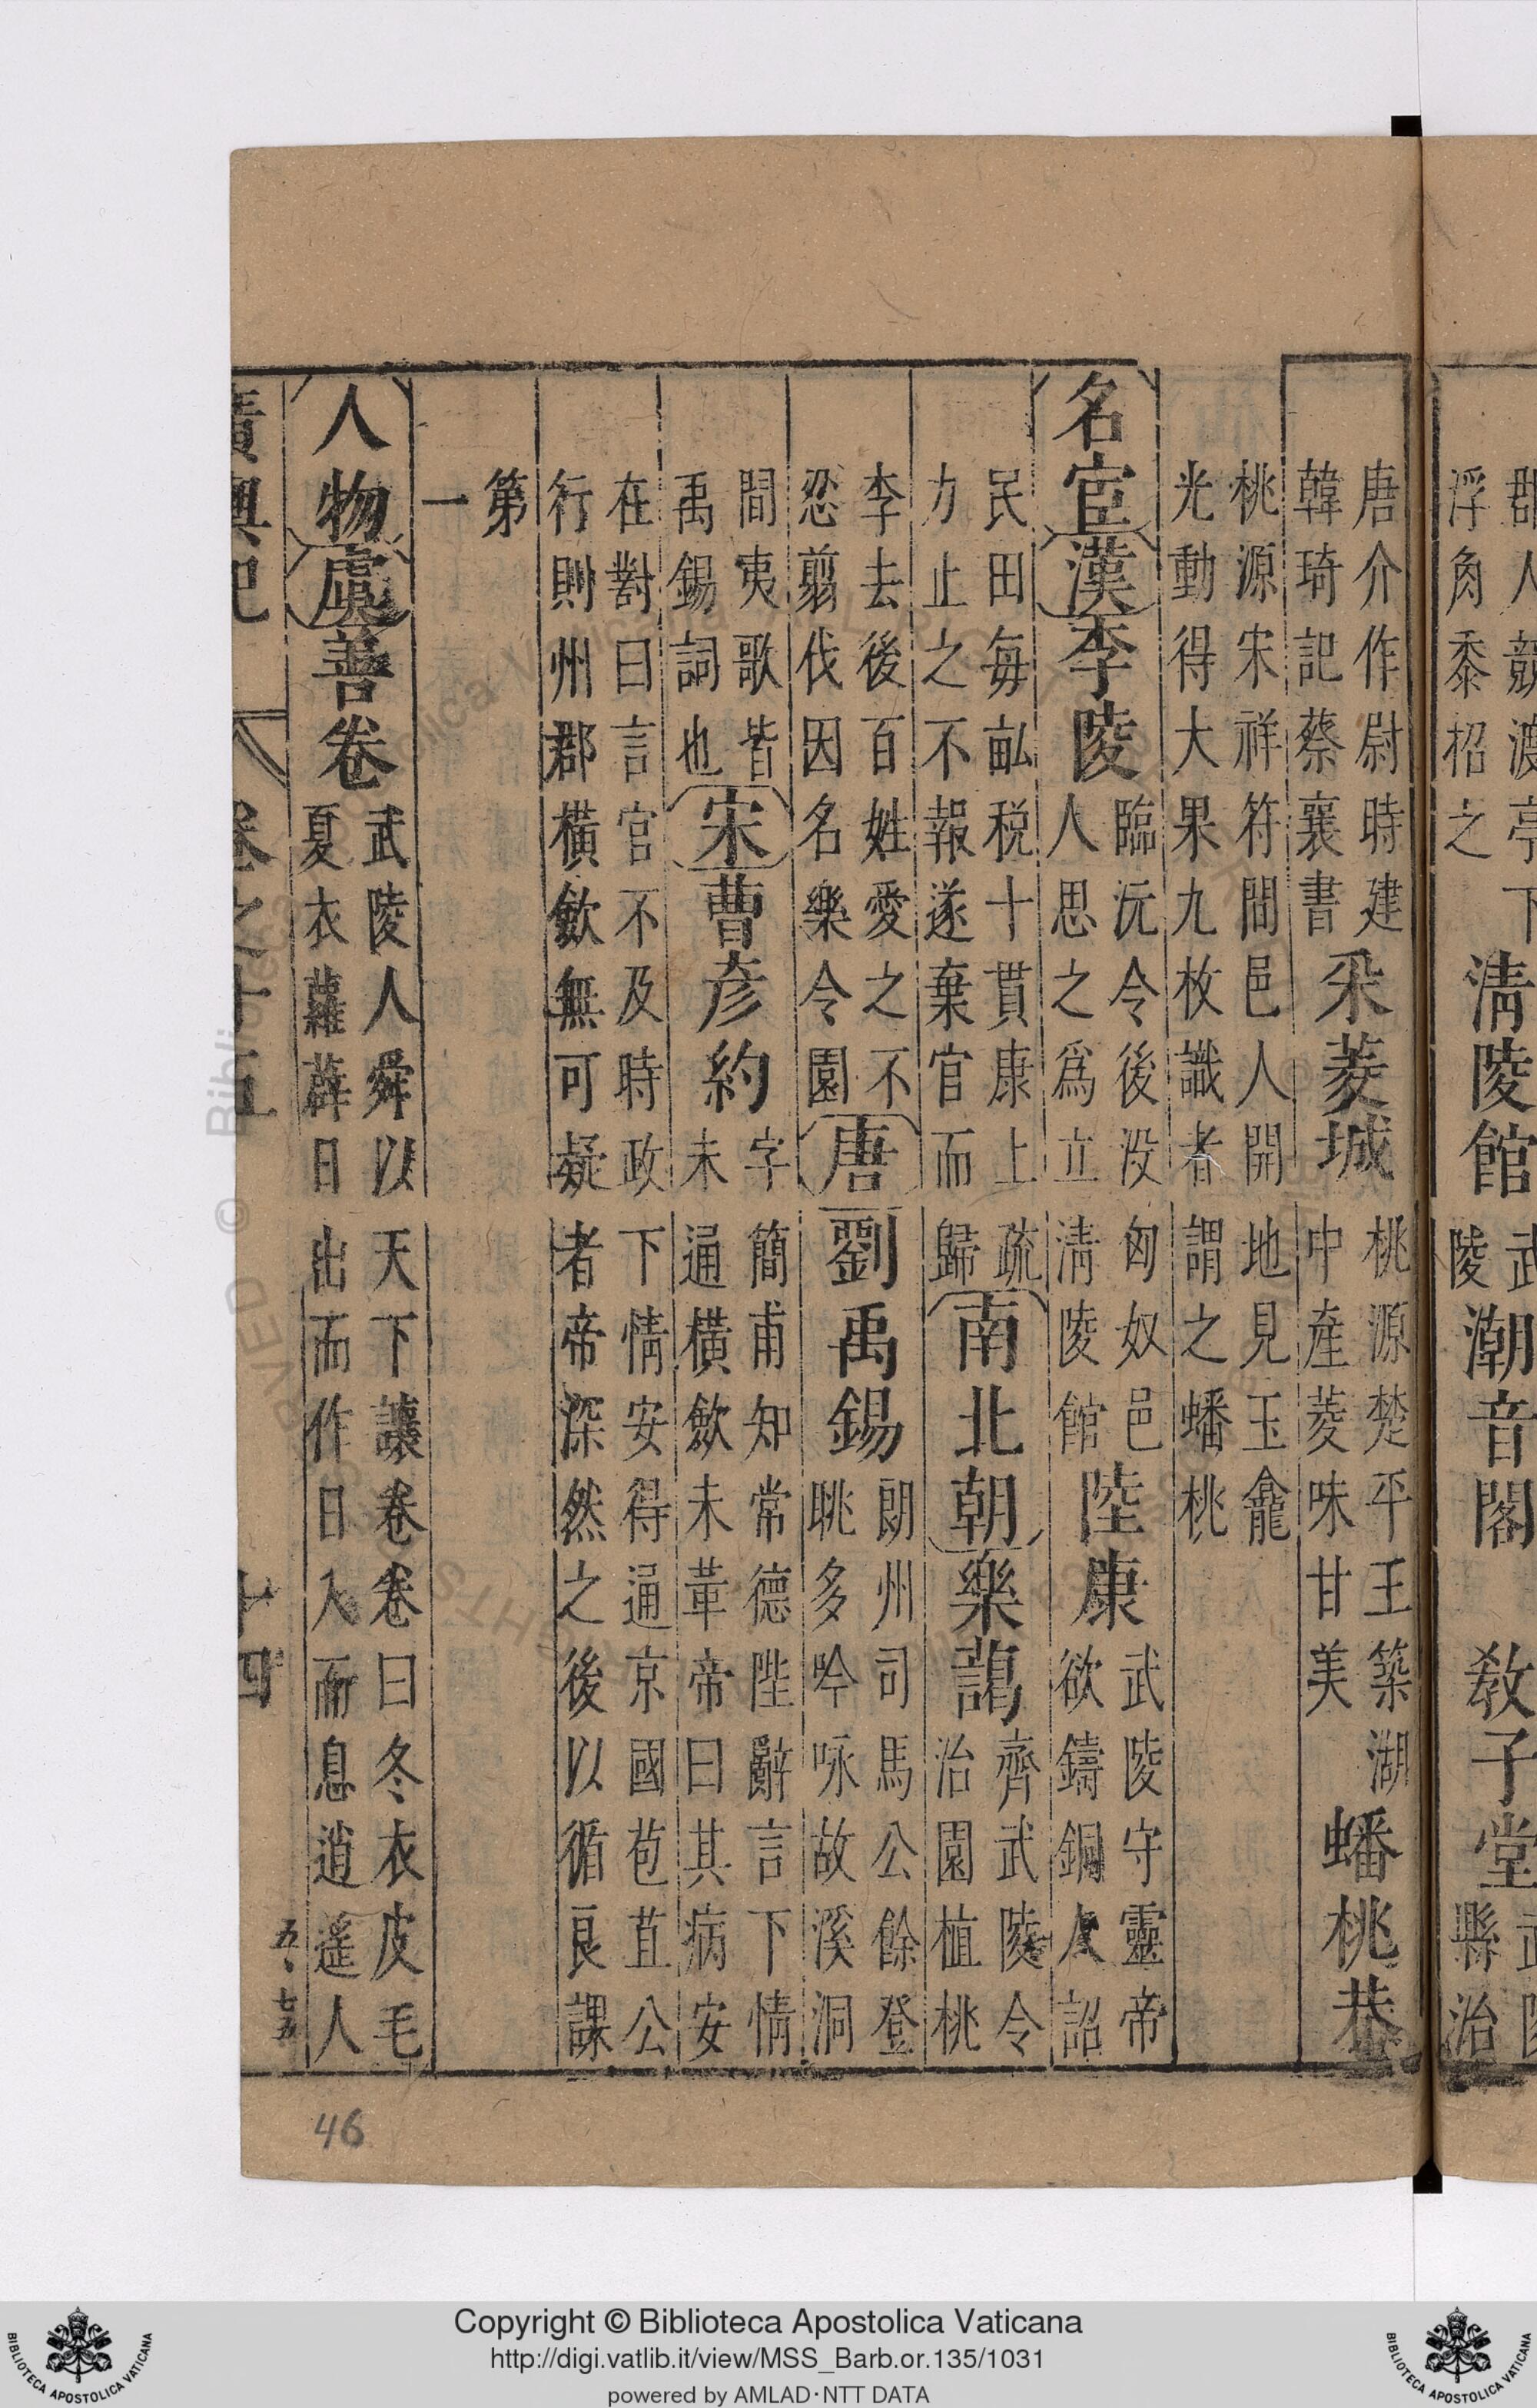 清陵館
潮音閣
敎子堂
浮角黍招之
陵
縣治
唐介作尉時建
韓琦記蔡襄書
采菱城
桃源楚平王築湖
中產菱味甘美
蟠桃巷
桃源宋祥符間邑人開地見玉龕
光動得大果九枚識者謂之蟠桃
名宦
漢
李陵
臨沅令後没匈奴邑
人思之爲立淸陵館
陸康
武陵守靈帝
欲鑄銅人詔
民田每畝税十貫康上疏
力止之不報遂棄官而歸
南北朝
樂藹
齊武陵令
治園植桃
李去後百姓愛之不
忍翦伐因名樂令園
唐
劉禹錫
朗州司馬公餘登
眺多吟咏故溪洞
間夷歌皆
禹錫詞也
宋
曹彦約
字簡甫知常德陛辭言下情
未通橫歛未革帝曰其病安
在對曰言官不及時政下情安得通京國苞苴公
行則州郡橫歛無可疑者帝深然之後以循良課
第
一
人物
虞
善卷
武陵人舜以天下讓卷卷曰冬衣皮毛
夏衣蘿薜日出而作日入而息逍遙人
廣輿記
卷之十五
十四
五、七五
46
Copyright © Biblioteca Apostolica Vaticana
http://digi.vatlib.it/view/MSS_Barb.or.135/1031
powered by AMLAD·NTT DATA
BIBLIOTECA APOSTOLICA VATICANA
BIBLIOTECA APOSTOLICA VATICANA